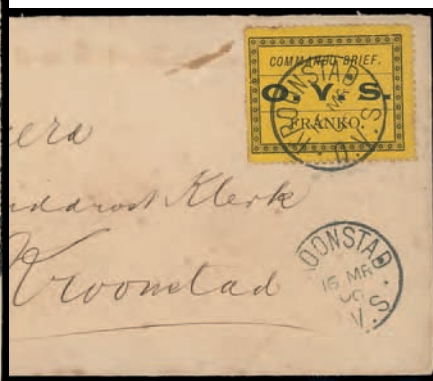 COMMANDO BRIEF.
O. V. S.
FRANKO.
KROONSTAD
MR
O.V.S.
Klerk
Kroonstad
ROONSTAD
16 MR
00
V.S.